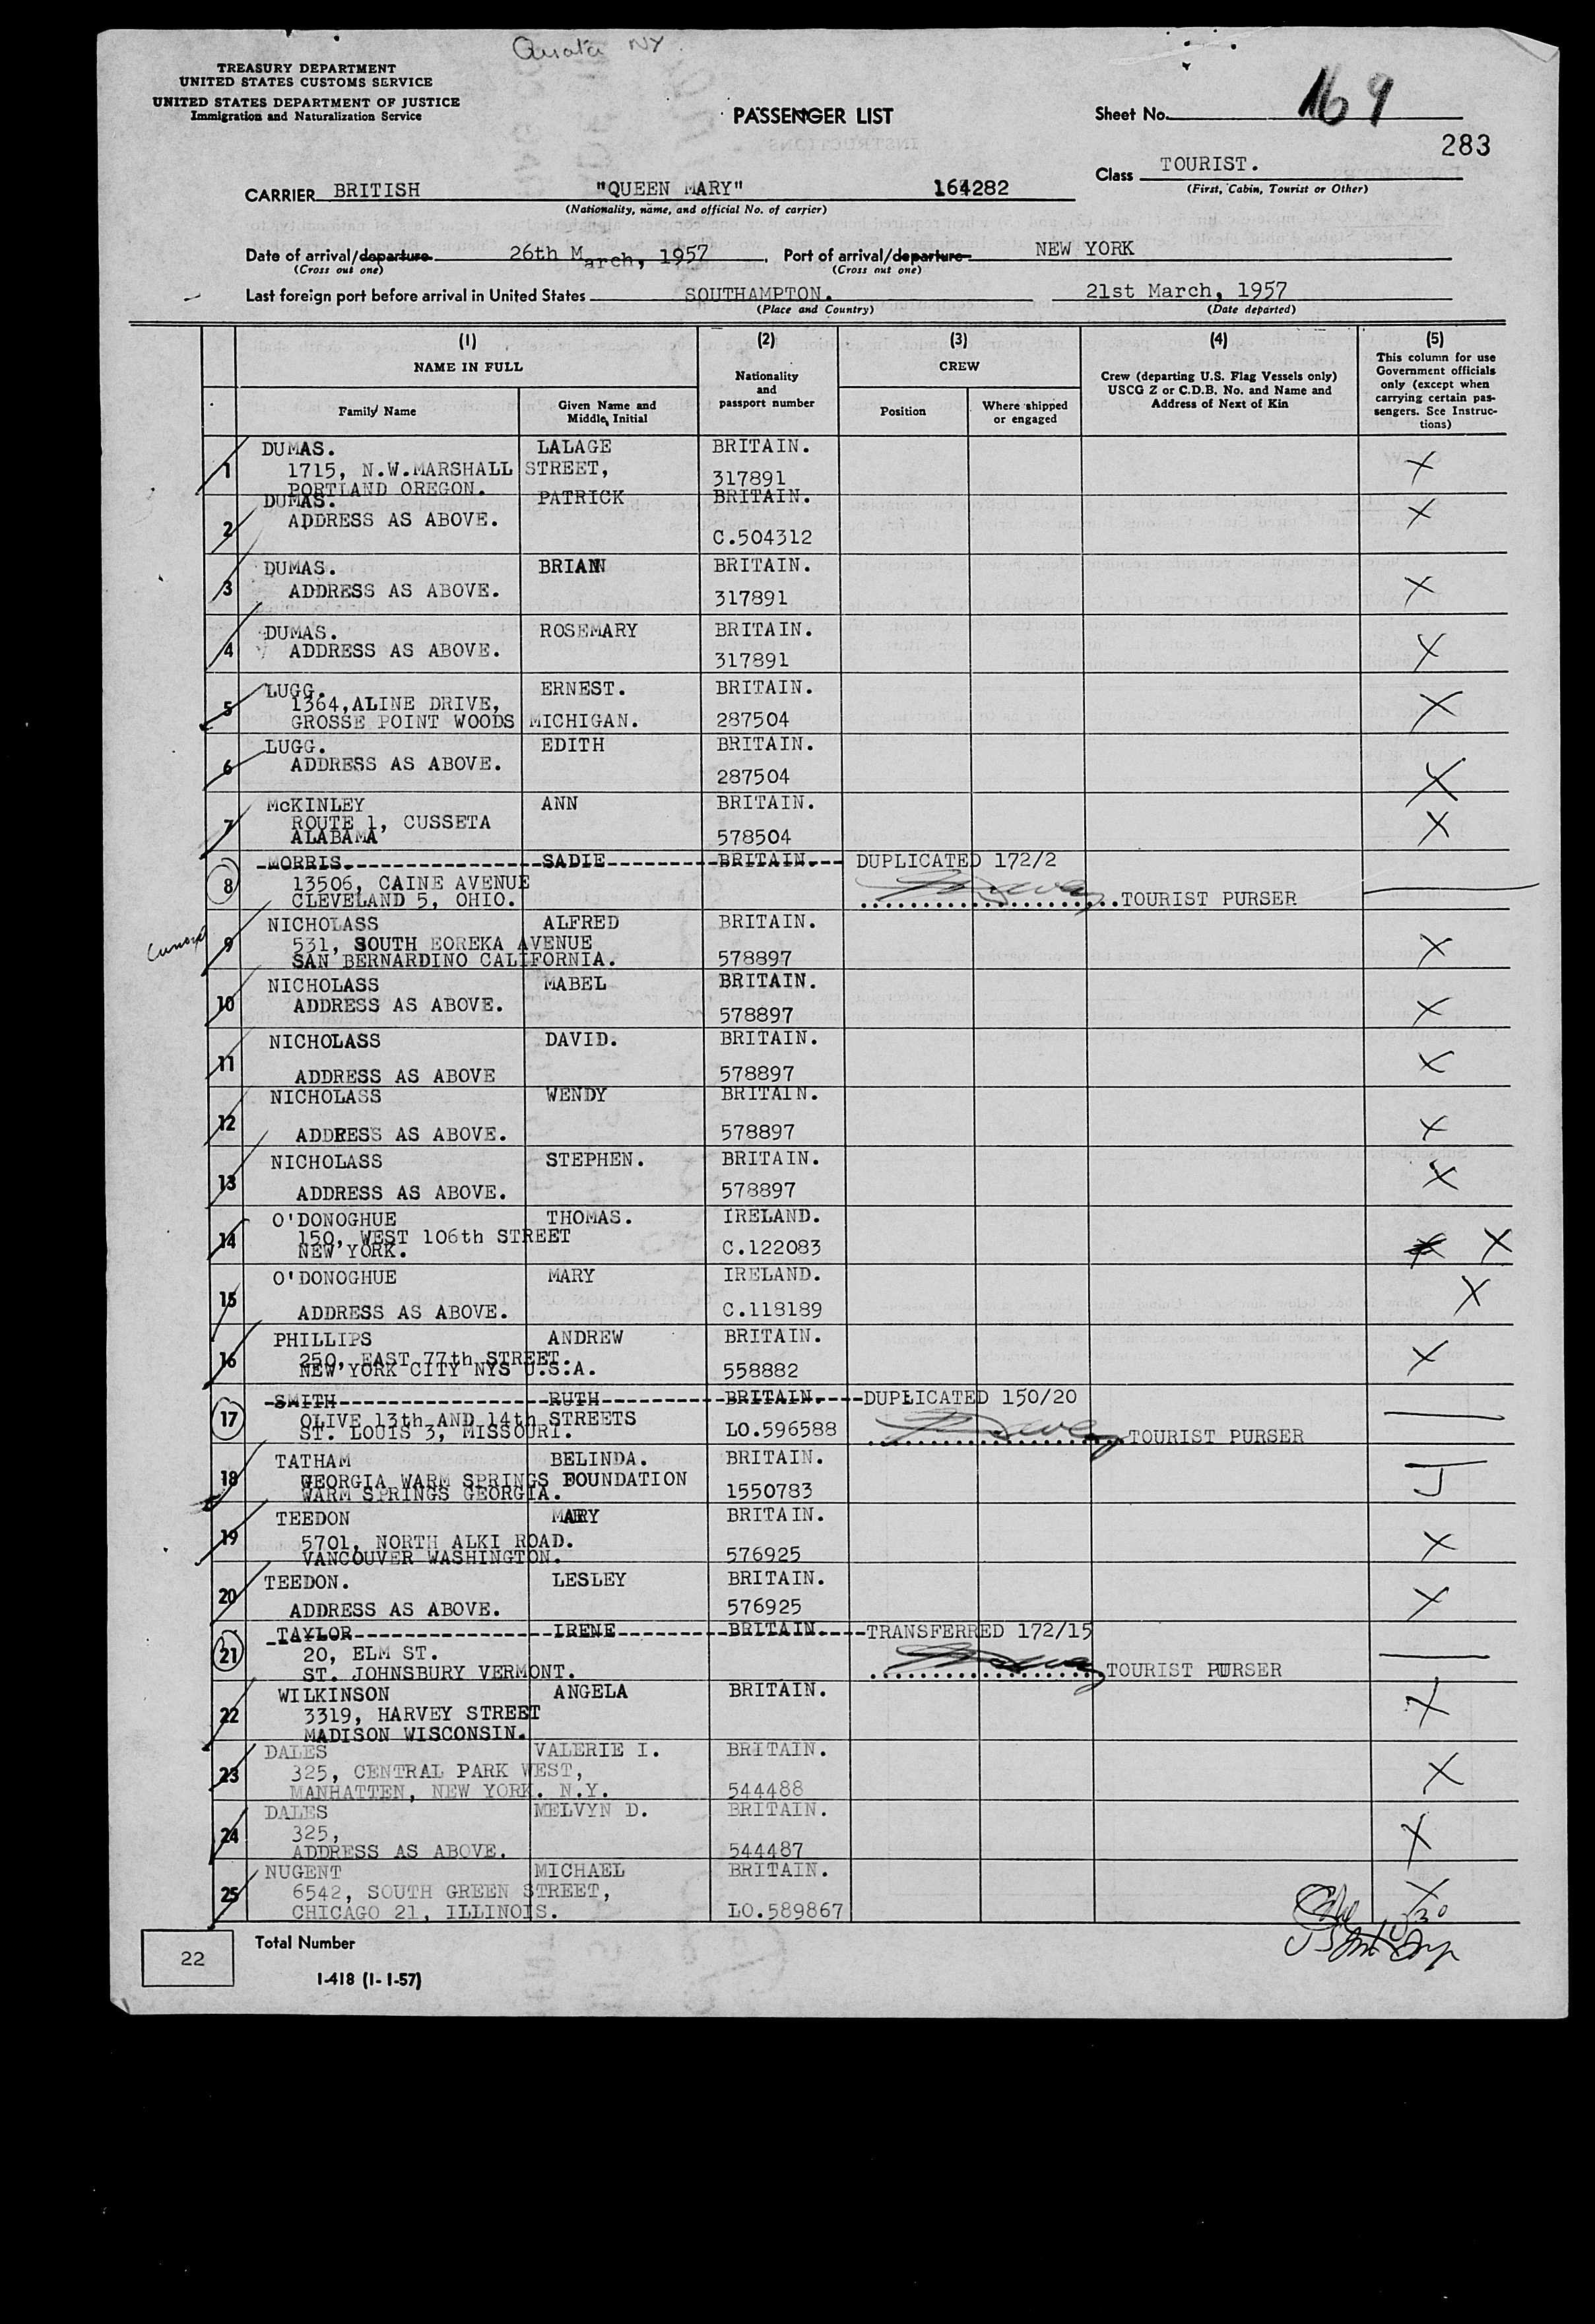 Quota NY
TREASURY DEPARTMENT
UNITED STATES CUSTOMS SERVICE
UNITED STATES DEPARTMENT OF JUSTICE
Immigration and Naturalization Service
PASSENGER LIST
Sheet No. 169
283
Class TOURIST.
(First, Cabin, Tourist or Other)
CARRIER BRITISH "QUEEN MARY" 164282
(Nationality, name, and official No. of carrier)
Date of arrival/departure 26th March, 1957. Port of arrival/departure NEW YORK
(Cross out one) (Cross out one)
Last foreign port before arrival in United States SOUTHAMPTON. 21st March, 1957
(Place and Country) (Date departed)
(1) (2) (3) (4) (5)
NAME IN FULL Nationality and passport number CREW Crew (departing U.S. Flag Vessels only) USCG Z or C.D.B. No. and Name and Address of Next of Kin This column for use Government officials only (except when carrying certain passengers. See Instructions)
Family Name Given Name and Middle Initial Position Where shipped or engaged
1 DUMAS. LALAGE BRITAIN. X
1715, N.W.MARSHALL STREET, 317891
PORTLAND OREGON.
2 DUMAS. PATRICK BRITAIN. X
ADDRESS AS ABOVE. C.504312
3 DUMAS. BRIAN BRITAIN. X
ADDRESS AS ABOVE. 317891
4 DUMAS. ROSEMARY BRITAIN. X
ADDRESS AS ABOVE. 317891
5 LUGG. ERNEST. BRITAIN. X
1364,ALINE DRIVE,
GROSSE POINT WOODS MICHIGAN. 287504
6 LUGG. EDITH BRITAIN. X
ADDRESS AS ABOVE. 287504
7 McKINLEY ANN BRITAIN. X
ROUTE 1, CUSSETA
ALABAMA 578504
8 MORRIS SADIE BRITAIN. DUPLICATED 172/2
13506, CAINE AVENUE
CLEVELAND 5, OHIO. TOURIST PURSER
9 NICHOLASS ALFRED BRITAIN. X
531, SOUTH EOREKA AVENUE
SAN BERNARDINO CALIFORNIA. 578897
10 NICHOLASS MABEL BRITAIN. X
ADDRESS AS ABOVE. 578897
11 NICHOLASS DAVID. BRITAIN. X
ADDRESS AS ABOVE 578897
12 NICHOLASS WENDY BRITAIN. X
ADDRESS AS ABOVE. 578897
13 NICHOLASS STEPHEN. BRITAIN. X
ADDRESS AS ABOVE. 578897
14 O'DONOGHUE THOMAS. IRELAND. X
150, WEST 106th STREET
NEW YORK. C.122083
15 O'DONOGHUE MARY IRELAND. X
ADDRESS AS ABOVE. C.118189
16 PHILLIPS ANDREW BRITAIN. X
250, EAST 77th STREET.
NEW YORK CITY NYS U.S.A. 558882
17 SMITH RUTH BRITAIN. DUPLICATED 150/20
OLIVE 13th AND 14th STREETS
ST. LOUIS 3, MISSOURI. LO.596588 TOURIST PURSER
18 TATHAM BELINDA. BRITAIN. J
GEORGIA WARM SPRINGS FOUNDATION
WARM SPRINGS GEORGIA. 1550783
19 TEEDON MARY BRITAIN. X
5701, NORTH ALKI ROAD.
VANCOUVER WASHINGTON. 576925
20 TEEDON. LESLEY BRITAIN. X
ADDRESS AS ABOVE. 576925
21 TAYLOR IRENE BRITAIN. TRANSFERRED 172/15
20, ELM ST.
ST. JOHNSBURY VERMONT. TOURIST PURSER
22 WILKINSON ANGELA BRITAIN. X
3319, HARVEY STREET
MADISON WISCONSIN.
23 DALES VALERIE I. BRITAIN. X
325, CENTRAL PARK WEST,
MANHATTEN, NEW YORK. N.Y. 544488
24 DALES MELVYN D. BRITAIN. X
325,
ADDRESS AS ABOVE. 544487
25 NUGENT MICHAEL BRITAIN. X
6542, SOUTH GREEN STREET,
CHICAGO 21, ILLINOIS. LO.589867
22 Total Number
I-418 (1-1-57)